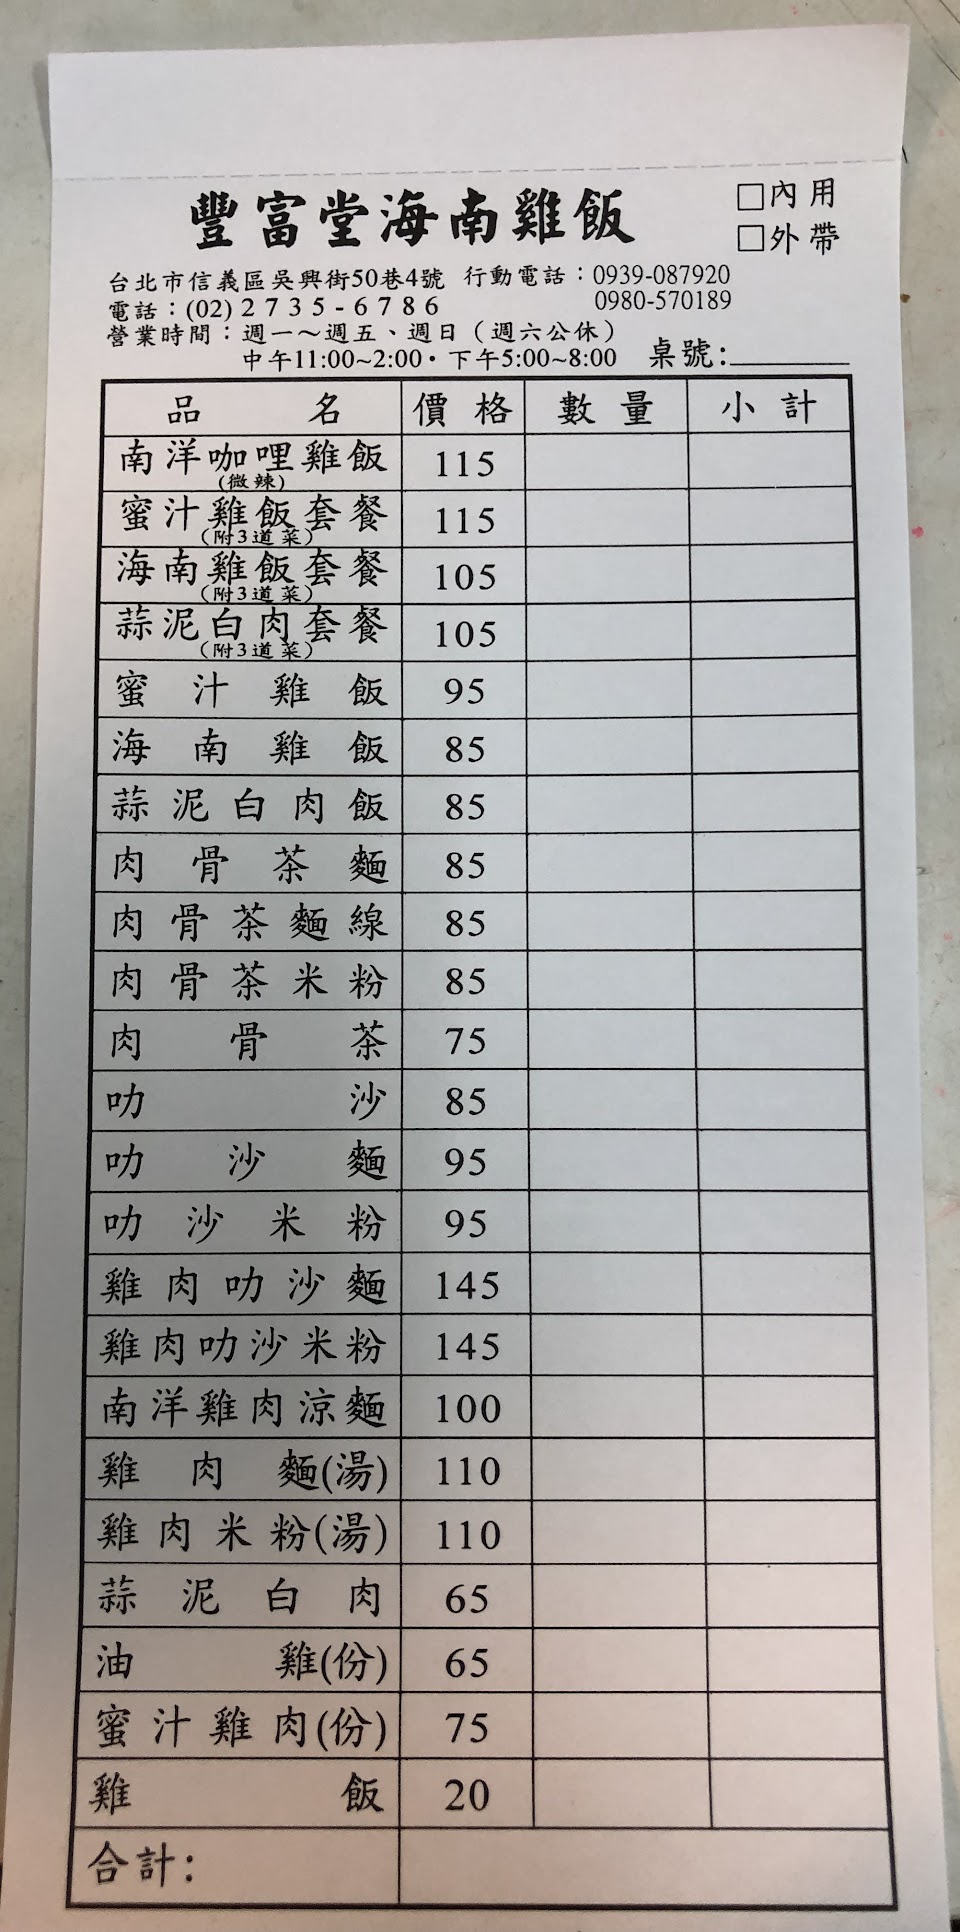 豐富堂海南雞飯
□內用
□外帶
台北市信義區吳興街50巷4號 行動電話：0939-087920
電話：(02) 2735-6786 0980-570189
營業時間：週一～週五、週日（週六公休）
中午11:00~2:00・下午5:00~8:00 桌號:
品名 價格 數量 小計
南洋咖哩雞飯 115
(微辣)
蜜汁雞飯套餐 115
(附3道菜)
海南雞飯套餐 105
(附3道菜)
蒜泥白肉套餐 105
(附3道菜)
蜜汁雞飯 95
海南雞飯 85
蒜泥白肉飯 85
肉骨茶麵 85
肉骨茶麵線 85
肉骨茶米粉 85
肉骨茶 75
叻沙 85
叻沙麵 95
叻沙米粉 95
雞肉叻沙麵 145
雞肉叻沙米粉 145
南洋雞肉涼麵 100
雞肉麵(湯) 110
雞肉米粉(湯) 110
蒜泥白肉 65
油雞(份) 65
蜜汁雞肉(份) 75
雞飯 20
合計: